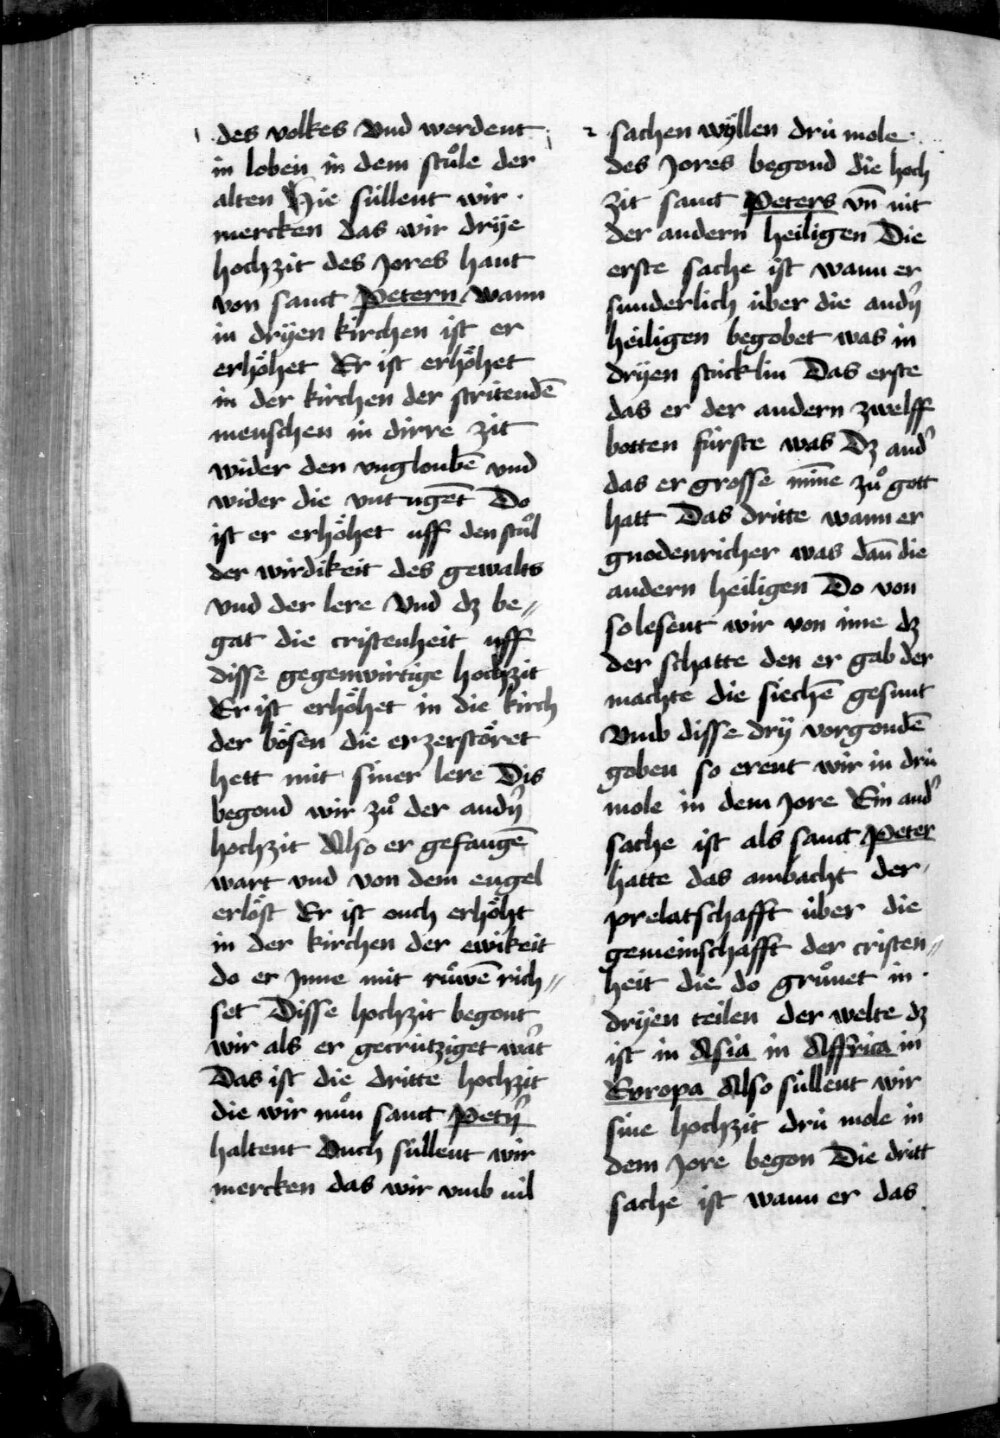 des volkes Vnd werdent
in loben in dem stuͦle der
alten Hie süllent wir
mercken das wir drÿe
hochzit des Jores hant
von sanct Petern Wann
in drÿen kirchen ist er
erhoͤhet Er ist erhoͤhet
in der kirchen der stritendē
menschen in dirre zit
wider den vngloubē vnd
wider die vntugēt Do
ist er erhoͤhet uff den stuͦl
der wirdikeit des gewalts
vnd der lere Vnd dz be〃
gat die cristenheit uff
disse gegenwirtige hochzit
Er ist erhoͤhet in die kirch
der boͤsen die er zerstoͤret
hett mit siner lere Dis
begond wir zuͦ der andn̄
hochzit Also er gefangē
wart vnd von dem engel
erloͤst Er ist ouch erhoͤht
in der kirchen der ewikeit
do er Jnne mit ruͦwē rich〃
set Disse hochzit begont
wir als er gecrütziget wᵃt
Das ist die dritte hochzit
die wir nuͦn sanct Petn̄
haltent Ouch süllent wir
mercken das wir vmb vil
2 sachen wÿllen drü mole
des Jores begond die hoch
zit sanct Peters vn̄ nit
der andern heiligen Die
erste sache ist wann er
sunderlich über die andn̄
heiligen begobet was in
drÿen stücklin Das erste
das er der andern zwelff
botten fürste was Dz and̉
das er grosse mīne zuͦ gott
hatt Das dritte wann er
gnodenricher was dan̄ die
andern heiligen Do von
so lesent wir von ime dz
der schatte den er gab der
machte die siechē gesunt
Vmb disse drÿ vorgondē
goben so erent wir in drü
mole in dem Jore Ein and̉
sache ist als sanct Peter
hatte das ambacht der
prelatschafft über die
gemeinschafft der cristen〃
heit die do gruͦnet in
drÿen teilen der welte dz
ist in Asia in Affrica in
Evropa Also süllent wir
sine hochzit drü mole in
dem Jore begon Die dritt
sache ist wann er das